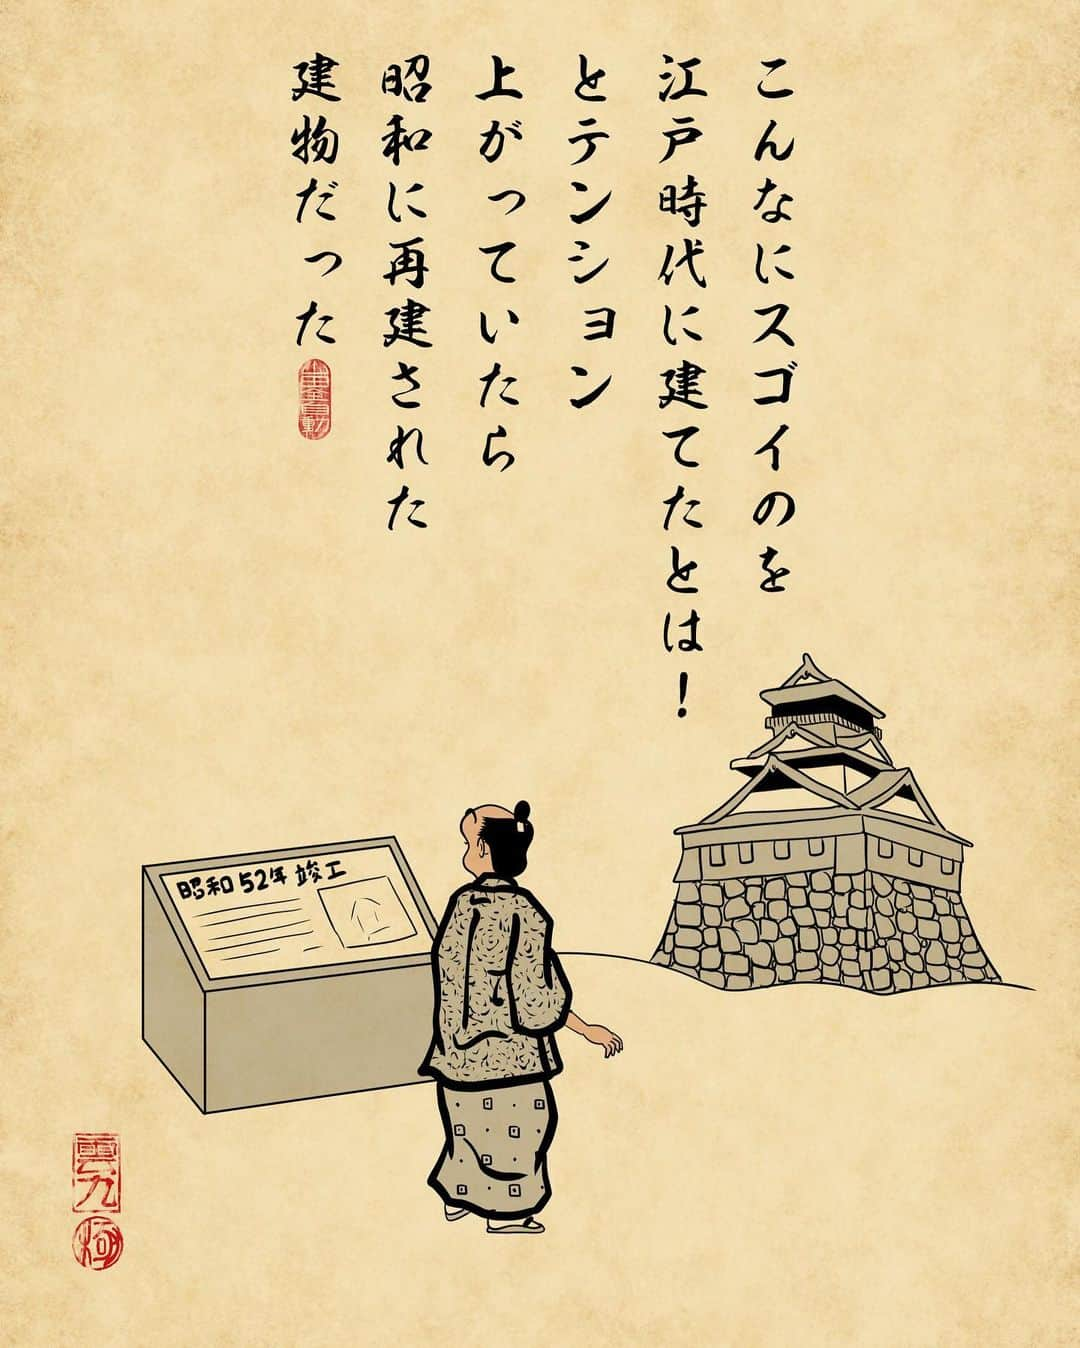 こんなにスゴイのを
江戸時代に建てたとは！
とテンション
上がっていたら
昭和に再建された
建物だった
昭和52年 竣工